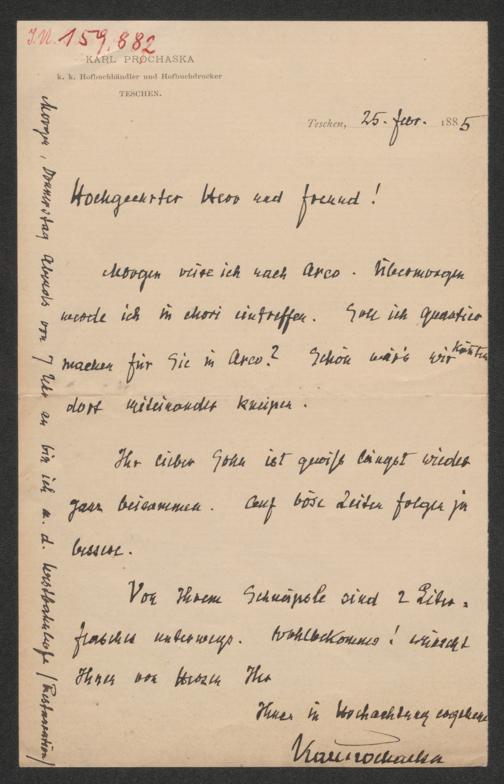 I.N. 159.882
KARL PROCHASKA
k. k. Hofbuchhändler und Hofbuchdrucker
TESCHEN.
Teschen, 25. febr. 1885
Hochgeehrter Herr und Freund!
Morgen reise ich nach Arco. Übermorgen
werde ich in Mori eintreffen. Soll ich Quartier
machen für Sie in Arco? Schön wär's wir könnten
dort miteinander kneipen.
Ihr lieber Sohn ist gewiß längst wieder
ganz beisammen. Auf böse Zeiten folgen ja
bessere.
Von Ihrem Schnäpsle sind 2 Liter-
flaschen unterwegs. Wohlbekomms! wünscht
Ihnen von Herzen Ihr
Ihnen in Hochachtung ergebener
Karl Prochaska
Morgen, Donnerstag Abends von 7 Uhr an bin ich a. d. Westbahnhofe (Restauration)